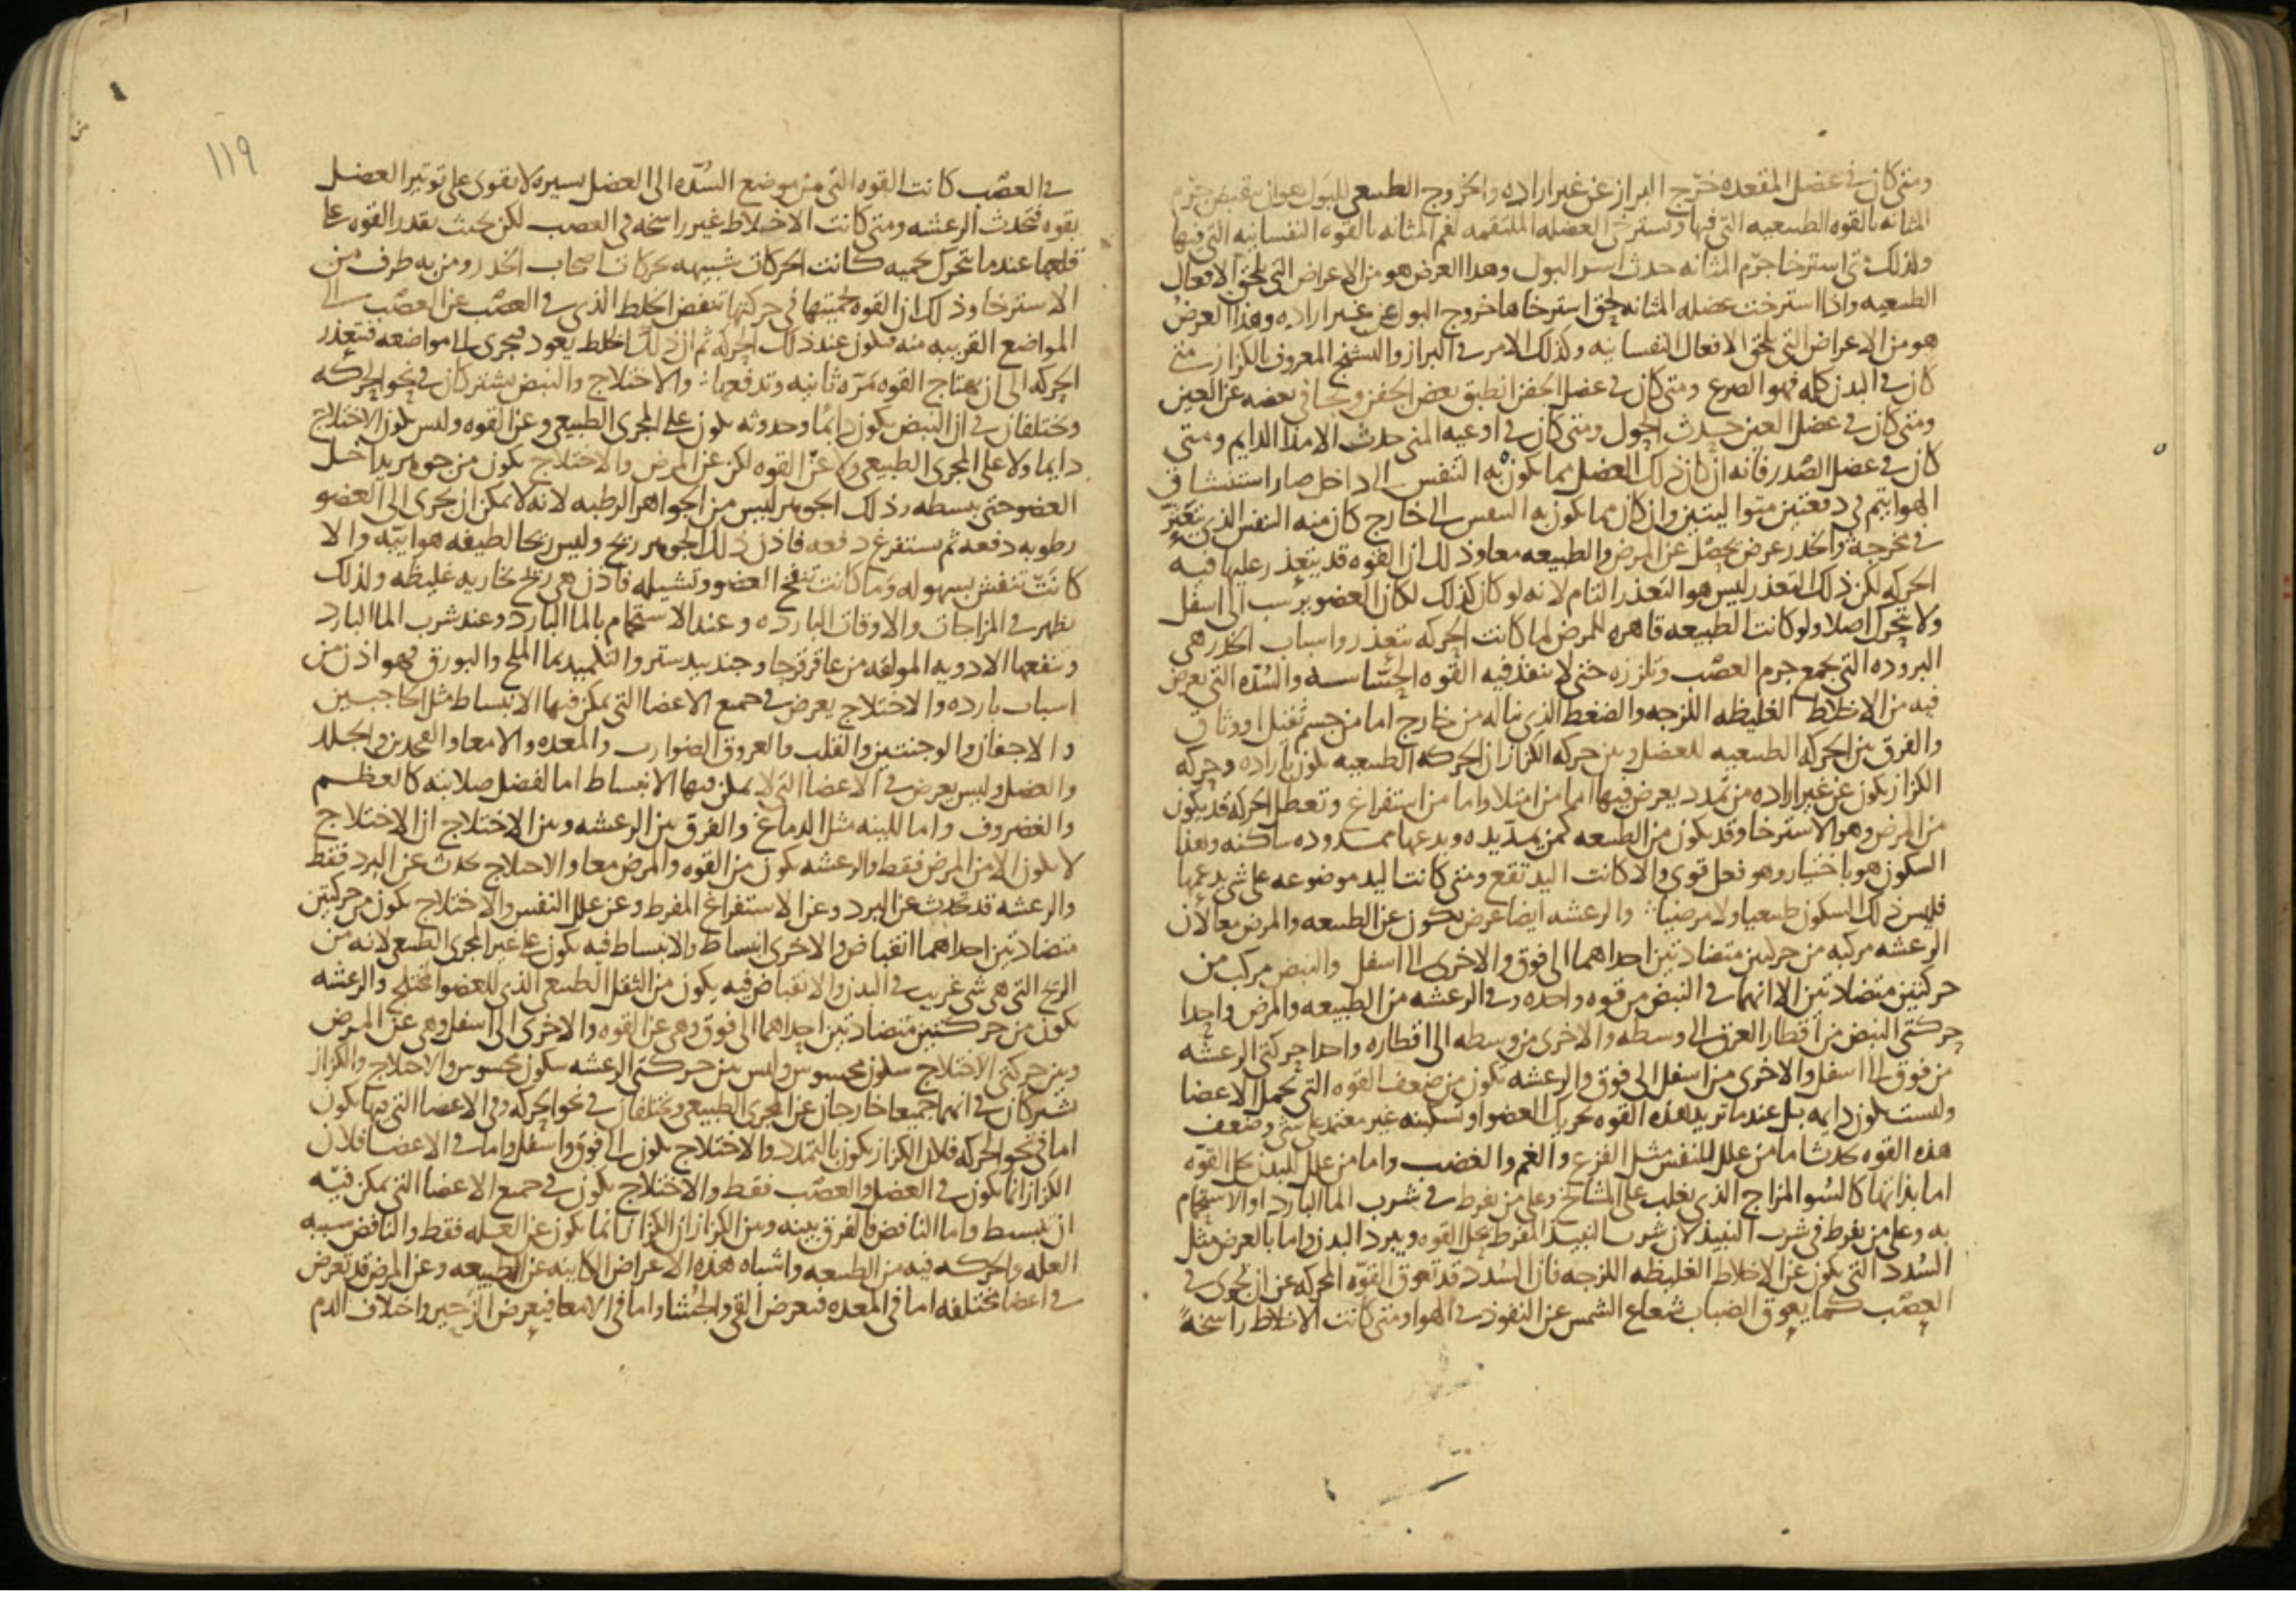 ومتى كان في عضل المقعده خرج البراز عن غير اراده والخروج الطبيعي للبول هو ان يقبض جرم
المثانه بالقوه الطبيعيه التي فيها وتسترخي العضله الملتقمه لفم المثانه بالقوه النفسانيه التي فيها
ولذلك متى استرخا جرم المثانه حدث اسر البول وهذا العرض هو من الاعراض التي تلحق الافعال
الطبيعيه واذا استرخت عضله المثانه لحق استرخاها خروج البول عن غير اراده وهذا العرض
هو من الاعراض التي تلحق الافعال النفسانيه وكذلك الامر في البراز والتشنج المعروف بالكزاز متى
كان في البدن كله فهو الصرع ومتى كان في عضل الجفن انطبق بعض الجفن وتجافى بعضه عن العين
ومتى كان في عضل العين حدث الحول ومتى كان في اوعيه المنى حدث الامذا الدايم ومتى
كان في عضل الصدر فانه ان كان ذلك العضل مما يكون به التنفس الى داخل صار استنشاق
الهوا يتم في دفعتين متواليتين وان كان مما يكون به التنفس الى خارج كان منه التنفس الذي يتغير
في مخرجه والخدر عرض يحصل عن المرض والطبيعه معا وذلك ان القوه قد يتعذر عليها فيه
الحركه لكن ذلك التعذر ليس هو التعذر التام لانه لو كان كذلك لكان العضو يرسب الى اسفل
ولا يتحرك اصلا ولو كانت الطبيعه قاهره للمرض لما كانت الحركه تتعذر واسباب الخدر هي
البروده التي تجمع جرم العصب وتلززه حتى لا ينفذ فيه القوه الحساسه والسده التي تعرض
فيه من الاخلاط الغليظه اللزجه والضغط الذي يناله من خارج اما من جسم ثقيل او وثاق
والفرق بين الحركه الطبيعيه للعضل وبين حركه الكزاز ان الحركه الطبيعيه تكون باراده وحركه
الكزاز يكون عن غير اراده من تمدد يعرض فيها اما من امتلا واما من استفراغ وتعطل الحركه قد يكون
من المرض وهو الاسترخا وقد يكون من الطبيعه كمن يمد يده ويدعها ممدوده ساكنه وهذا
السكون هو باختيار وهو فعل قوي والا كانت اليد تقع ومتى كانت اليد موضوعه على شي يدعمها
فليس ذلك السكون طبيعيا ولا مرضيا والرعشه ايضا عرض يكون عن الطبيعه والمرض معا لان
الرعشه مركبه من حركتين متضادتين احداهما الى فوق والاخرى الى اسفل والنبض مركب من
حركتين متضادتين الا انهما في النبض من قوه واحده وفي الرعشه من الطبيعه والمرض واحدا
حركتي النبض من اقطار العرق الى وسطه والاخرى من وسطه الى اقطاره واحدا حركتي الرعشه
من فوق الى اسفل والاخرى من اسفل الى فوق والرعشه تكون من ضعف القوه التي تحمل الاعضا
وليست تكون دايمه بل عندما تريد هذه القوه تحريك العضو او تسكينه غير معتمد على شي وضعف
هذه القوه يحدث اما من علل النفس مثل الفزع والغم والغضب واما من علل البدن تحل القوه
اما بذاتها كالسو المزاج الذي يغلب على المشايخ وعلى من يفرط في شرب الما البارد او الاستحمام
به وعلى من يفرط في شرب النبيذ لان شرب النبيذ المفرط يحل القوه ويبرد البدن واما بالعرض مثل
السدد التي يكون عن الاخلاط الغليظه اللزجه فان السدد قد تعوق القوه المحركه عن ان تجري في
العصب كما يعوق الضباب شعاع الشمس عن النفوذ في الهوا ومتى كانت الاخلاط راسخه
١١٩
في العصب كانت القوه التي من موضع السده الى العضل يسيره لا تقوى على توتير العضل
بقوه فتحدث الرعشه ومتى كانت الاخلاط غير راسخه في العصب لكن بحيث تقدر القوه على
قلعها عندما تتحرك بحميه كانت الحركات شبيهه بحركات اصحاب الخدر ومن به طرف من
الاسترخا وذلك ان القوه بحميتها في حركتها تنفض الخلط الذي في العصب عن العصب الى
المواضع القريبه منه فيكون عند ذلك الحركه ثم ان ذلك الخلط يعود فيجري الى مواضعه فتتعذر
الحركه الى ان تهتاج القوه مره ثانيه وتدفعها والاختلاج والنبض يشتركان في نحو الحركه
ويختلفان في ان النبض يكون دايما وحدوثه يكون على المجرى الطبيعي وعن القوه وليس يكون الاختلاج
دايما ولا على المجرى الطبيعي ولا عن القوه لكن عن المرض والاختلاج يكون من جوهر يداخل
العضو حتى يبسطه وذلك الجوهر ليس من الجواهر الرطبه لانه لا يمكن ان يجري الى العضو
رطوبه دفعه ثم يستفرغ دفعه فاذن ذلك الجوهر ريح وليس ريحا لطيفه هوائيه والا
كانت تنفش بسهوله وما كانت تنفخ العضو وتشيله فاذن هي ريح بخاريه غليظه ولذلك
يظهر في المزاجات والاوقات البارده وعند الاستحمام بالما البارد وعند شرب الما البارد
وينفعها الادويه المولفه من عاقرقرحا وجندبيدستر والتكميد بما الملح والبورق فهو اذن من
اسباب بارده والاختلاج يعرض في جميع الاعضا التي يمكن فيها الانبساط مثل الحاجبين
والاجفان والوجنتين والقلب والعروق الضوارب والمعده والامعا والفخذين والجلد
والعضل وليس يعرض في الاعضا التي لا يمكن فيها الانبساط اما لفضل صلابته كالعظم
والغضروف واما للينه مثل الدماغ والفرق بين الرعشه وبين الاختلاج ان الاختلاج
لا يكون الا من المرض فقط والرعشه يكون من القوه والمرض معا والاختلاج يحدث عن البرد فقط
والرعشه قد تحدث عن البرد وعن الاستفراغ المفرط وعن علل النفس والاختلاج يكون من حركتين
متضادتين احداهما انقباض والاخرى انبساط والانبساط فيه يكون على غير المجرى الطبيعي لانه من
الريح التي هي شي غريب في البدن والانقباض فيه يكون من الثقل الطبيعي الذي للعضو المختلج والرعشه
تكون من حركتين متضادتين احداهما الى فوق وهي عن القوه والاخرى الى اسفل وهي عن المرض
وبين حركتي الاختلاج سكون محسوس وليس بين حركتي الرعشه سكون محسوس والاختلاج والكزاز
يشتركان في انهما جميعا خارجان عن المجرى الطبيعي ويختلفان في نحو الحركه وفي الاعضا التي فيها يكون
اما في نحو الحركه فلان الكزاز يكون بالتمدد والاختلاج يكون الى فوق واسفل واما في الاعضا فلان
الكزاز انما يكون في العضل والعصب فقط والاختلاج يكون في جميع الاعضا التي يمكن فيه
ان ينبسط واما النافض فالفرق بينه وبين الكزاز ان الكزاز انما يكون عن العله فقط والنافض سببه
العله والحركه فيه من الطبيعه واشباه هذه الاعراض الكاينه عن الطبيعه وعن المرض قد تعرض
في اعضا مختلفه اما في المعده فيعرض القي والجشا واما في الامعا فيعرض الزحير واختلاف الدم